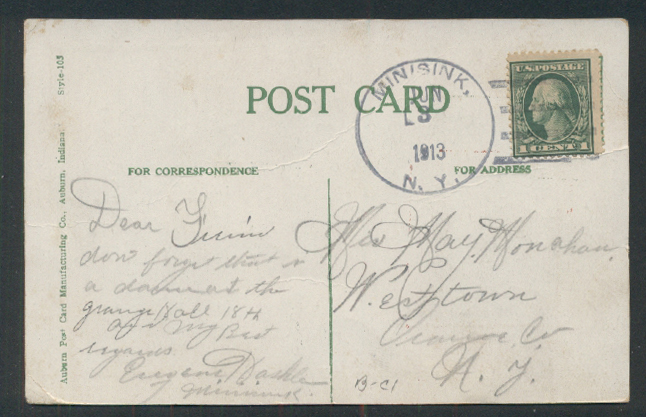 Style-103
Auburn Post Card Manufacturing Co., Auburn, Indiana.
POST CARD
MINISINK,
JUN
1913
N. Y.
U.S. POSTAGE
1 CENT 1
FOR CORRESPONDENCE
FOR ADDRESS
Dear
don forget that is
a dance at the
grange Hall 18th
My Best
regards
Eugene
Minisink.
May Monahan.
Westtown
Orange Co
N. Y.
B-C1